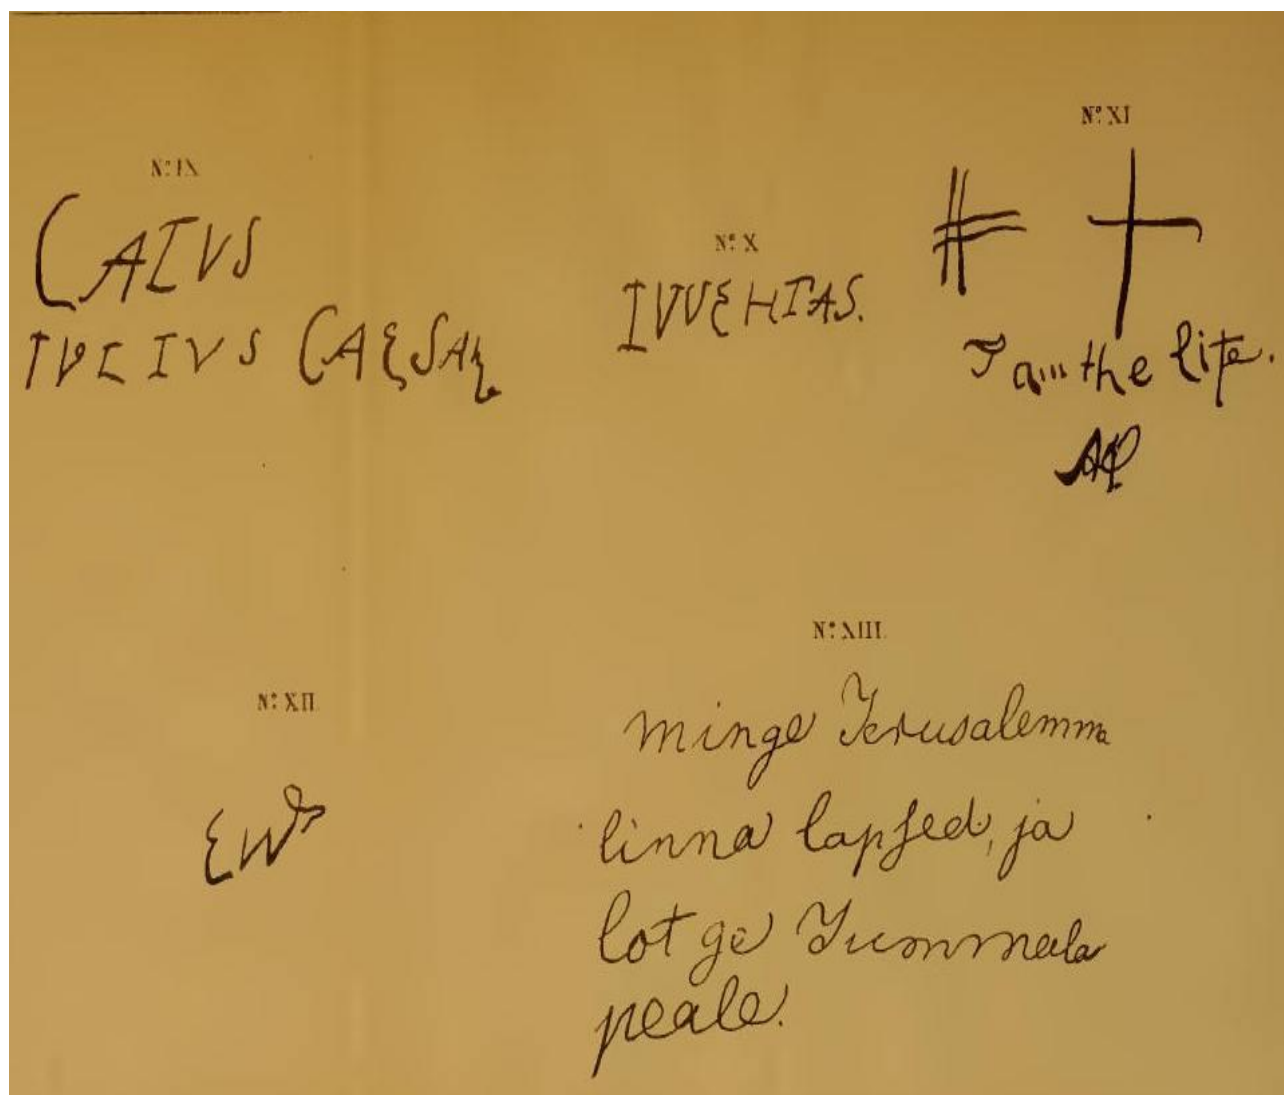 Nº IX
CAIVS
IVLIVS CAESAR
Nº X
IVVENTAS.
Nº XI
I am the life.
Nº XII
Nº XIII.
minge Jerusalemma
linna lapsed, ja
lotge Jummala
peale.